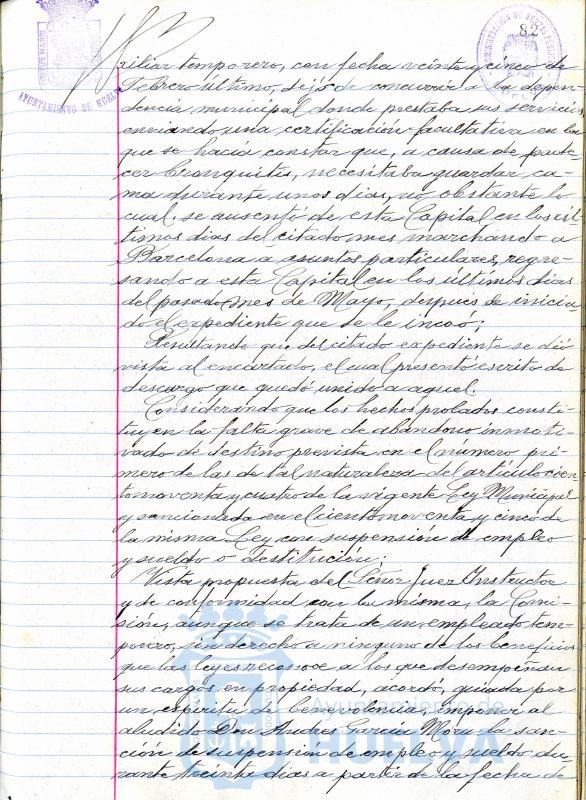 82
AYUNTAMIENTO DE HUELVA
xiliar temporero, con fecha veinte y cinco de
Febrero último, dejó de concurrir a la depen-
dencia municipal donde prestaba sus servicios
enviando una certificación facultativa en la
que se hacia constar que, a causa de pade-
cer bronquitis, necesitaba guardar ca-
ma durante unos dias, no obstante lo
cual, se ausentó de esta Capital en los úl-
timos dias del citado mes marchando a
Barcelona a asuntos particulares, regre-
sando a esta Capital en los últimos dias
del pasado mes de Mayo, después de inicia-
do el expediente que se le incoó;
Resultando que del citado expediente se dió
vista al encartado, el cual presentó escrito de
descargo que quedó unido a aquel.
Considerando que los hechos probados consti-
tuyen la falta grave de abandono inmoti-
vado de destino prevista en el número pri-
mero de las de tal naturaleza del artículo cien-
to noventa y cuatro de la vigente Ley Municipal
y sancionada en el ciento noventa y cinco de
la misma Ley con suspensión de empleo
y sueldo o destitución;
Vista propuesta del Señor Juez Instructor
y de conformidad con la misma, la Comi-
sión, aunque se trata de un empleado tem-
porero, sin derecho a ninguno de los beneficios
que las leyes reconoce a los que desempeñan
sus cargos en propiedad, acordó, guiada por
un espiritu de benevolencia, imponer al
aludido Don Andres García Mora la san-
ción de suspensión de empleo y sueldo du-
rante treinta dias a partir de la fecha de
Ayuntamiento de
HUELVA